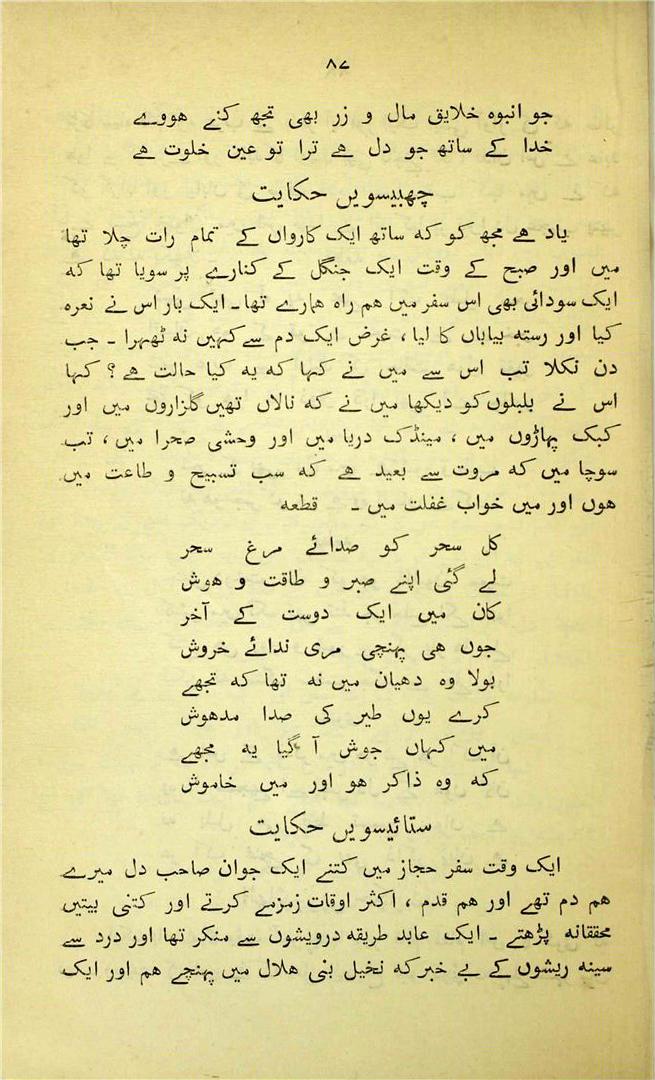 ۸۷
جو انبوہ خلایق مال و زر بھی تجھ کنے ھووے
خدا کے ساتھ جو دل ھے ترا تو عین خلوت ھے
چھبیسویں حکایت
یاد ھے مجھ کو کہ ساتھ ایک کارواں کے تمام رات چلا تھا
میں اور صبح کے وقت ایک جنگل کے کنارے پر سویا تھا کہ
ایک سودائی بھی اس سفر میں ھم راہ ھمارے تھا ۔ ایک بار اس نے نعرہ
کیا اور رستہ بیاباں کا لیا ، غرض ایک دم سے کہیں نہ ٹھہرا ۔ جب
دن نکلا تب اس سے میں نے کہا کہ یہ کیا حالت ھے ؟ کہا
اس نے بلبلوں کو دیکھا میں نے کہ نالاں تھیں گلزاروں میں اور
کبک پہاڑوں میں ، مینڈک دریا میں اور وحشی صحرا میں ، تب
سوچا میں کہ مروت سے بعید ھے کہ سب تسبیح و طاعت میں
ھوں اور میں خواب غفلت میں ۔ قطعہ
کل سحر کو صدائے مرغ سحر
لے گئی اپنے صبر و طاقت و ھوش
کان میں ایک دوست کے آخر
جوں ھی پہنچی مری ندائے خروش
بولا وہ دھیان میں نہ تھا کہ تجھے
کرے یوں طیر کی صدا مدھوش
میں کہاں جوش آ گیا یہ مجھے
کہ وہ ذاکر ھو اور میں خاموش
ستائیسویں حکایت
ایک وقت سفر حجاز میں کتنے ایک جوان صاحب دل میرے
ھم دم تھے اور ھم قدم ، اکثر اوقات زمزمے کرتے اور کتنی بیتیں
محققانہ پڑھتے ۔ ایک عابد طریقہ درویشوں سے منکر تھا اور درد سے
سینہ ریشوں کے بے خبر کہ نخیل بنی ھلال میں پہنچے ھم اور ایک